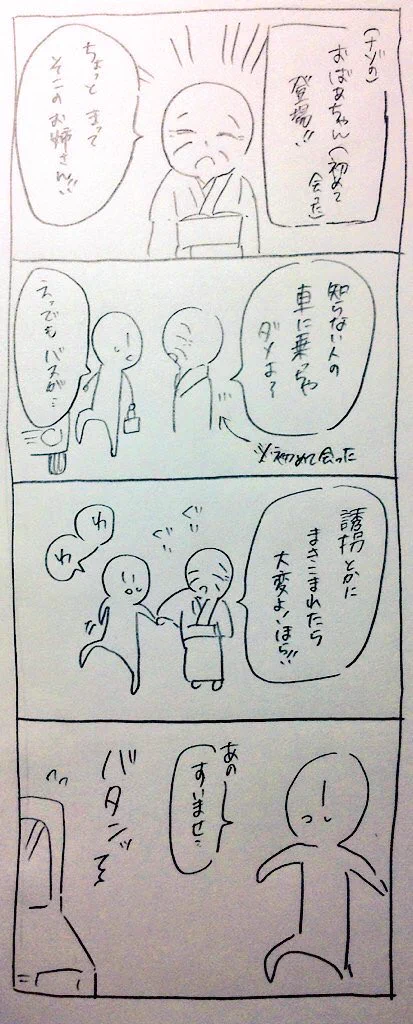 (ナゾの)
おばあちゃん(初めて
会った)
登場!!
ちょっと まって
そこのお姉さん!!
知らない人の
車に乗っちゃ
ダメよ?
※初めて会った
えっでも
バスが…
誘拐とかに
まきこまれたら
大変よ!ほら!!
ぐい
ぐい
わ
わ
あの
すいませ…
バタンッ